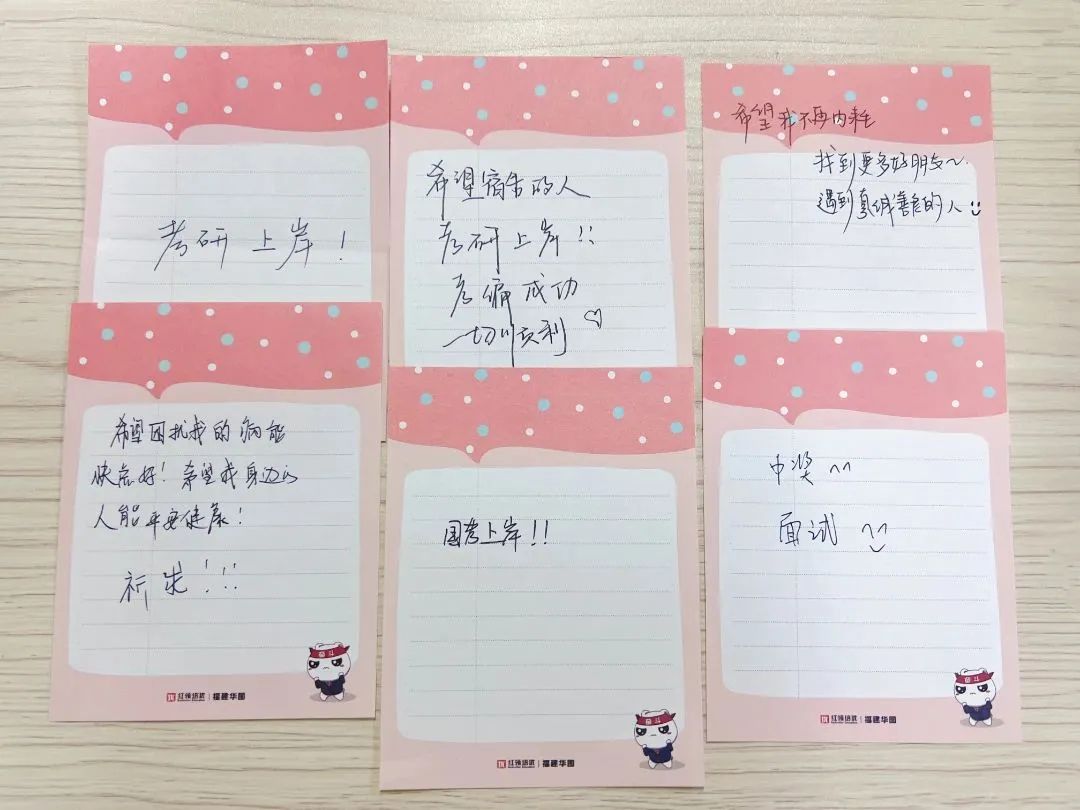 考研上岸！
希望宿舍的人
考研上岸!!
考编成功
一切顺利
希望我不再内耗
找到更多好朋友~
遇到真诚善良的人
希望困扰我的病能
快点好！希望我身边的
人能平安健康！
祈求！!!
奋斗
红领培优 福建华图
国考上岸!!
奋斗
红领培优 福建华图
中奖 ^^
面试 ^^
奋斗
红领培优 福建华图